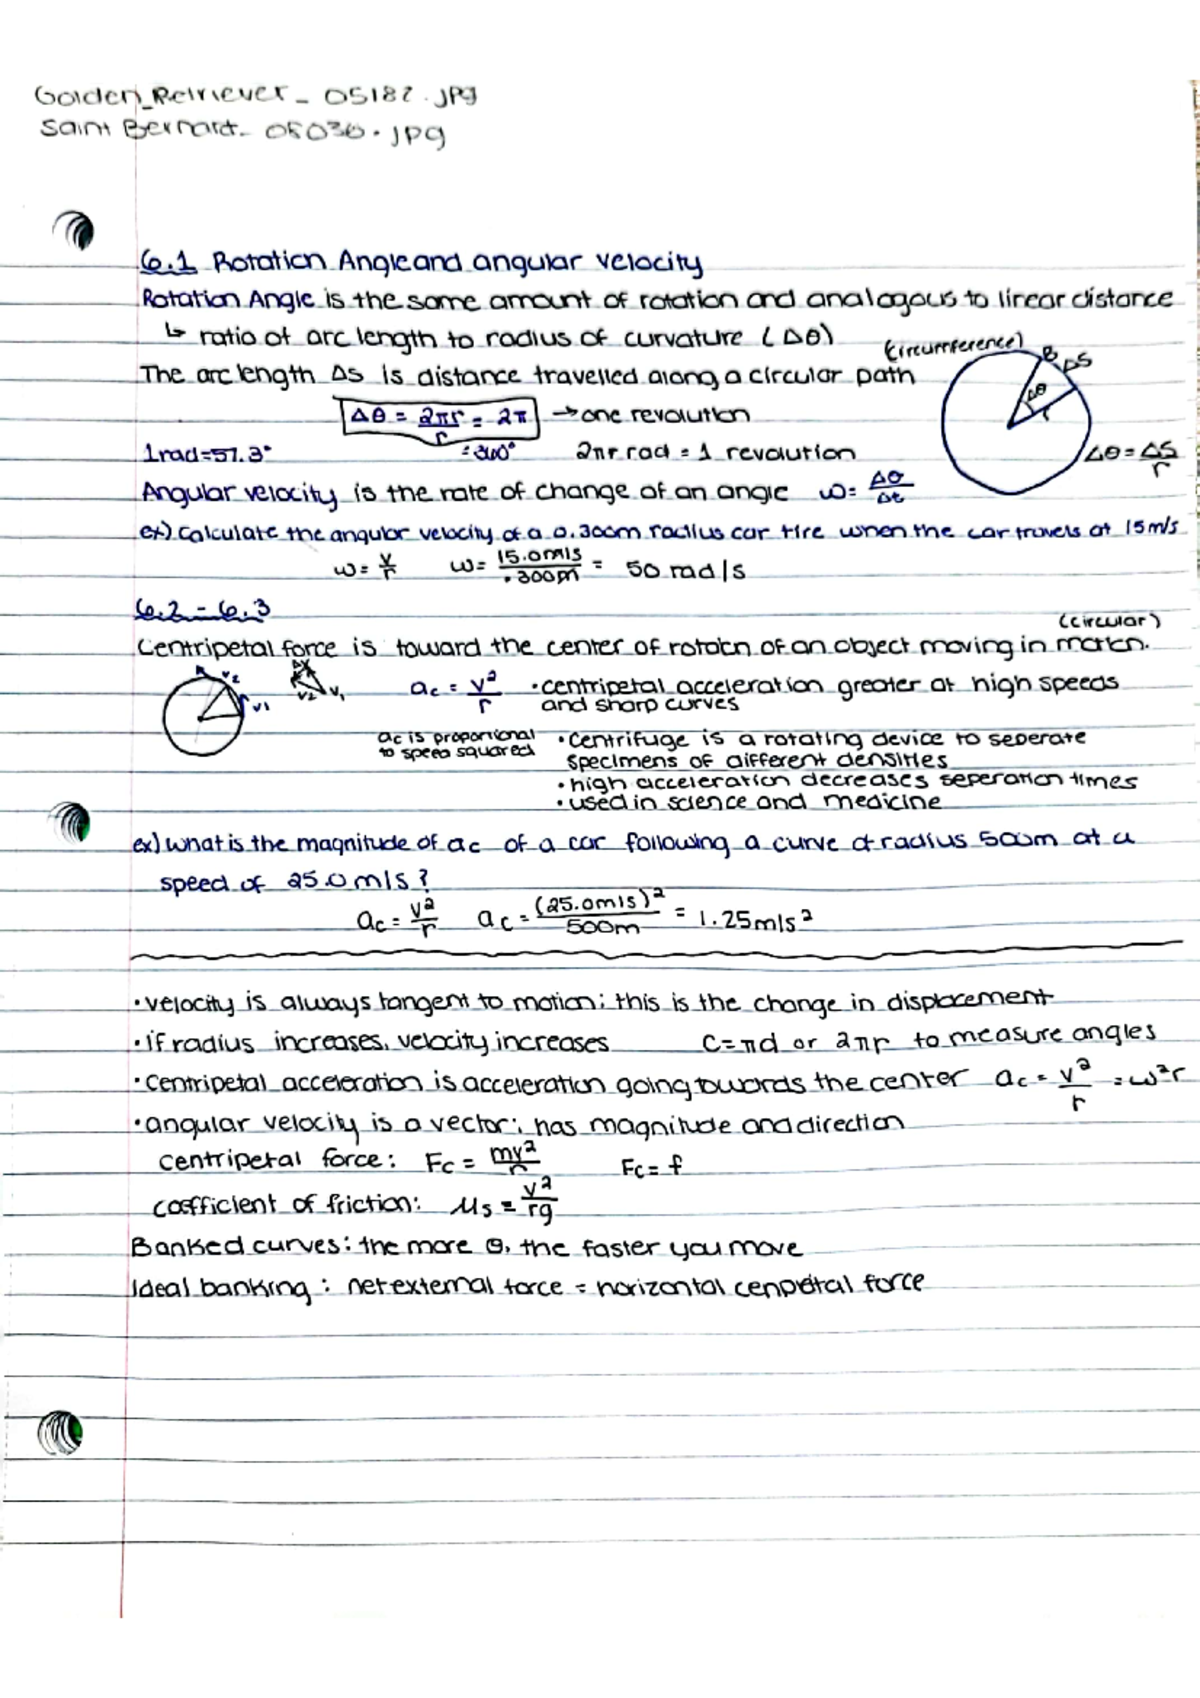 Golden_Retriever_05182.jpg
Saint Bernard_05036.jpg
6.1 Rotation Angle and angular velocity
Rotation Angle is the same amount of rotation and analogous to linear distance
↳ ratio of arc length to radius of curvature (Δθ)
(circumference)
B ΔS
Δθ
r
The arc length ΔS is distance travelled along a circular path
Δθ = 2πr/r = 2π → one revolution
1rad=57.3° = 360° 2πr rad = 1 revolution
Δθ = ΔS/r
Angular velocity is the rate of change of an angle ω = Δθ/Δt
ex) Calculate the angular velocity of a 0.300m radius car tire when the car travels at 15m/s
ω = v/r ω = 15.0m/s/.300m = 50 rad/s
6.2 - 6.3
(circular)
Centripetal force is toward the center of rotatcn of an object moving in motion.
v2 v1
Δv v2 v1
ac = v²/r •centripetal acceleration greater at high speeds
and sharp curves
ac is proportional
to speed squared
•Centrifuge is a rotating device to seperate
specimens of different densities
•high acceleration decreases seperation times
•used in science and medicine
ex) what is the magnitude of ac of a car following a curve of radius 500m at a
speed of 25.0 m/s?
ac = v²/r ac = (25.0m/s)²/500m = 1.25m/s²
•velocity is always tangent to motion; this is the change in displacement
•if radius increases, velocity increases C=πd or 2πr to measure angles
•centripetal acceleration is acceleration going towards the center ac = v²/r = ω²r
•angular velocity is a vector; has magnitude and direction
centripetal force: Fc = mv²/r Fc = f
coefficient of friction: μs = v²/rg
Banked curves: the more θ, the faster you move
Ideal banking: net external force = horizontal cenpretal force